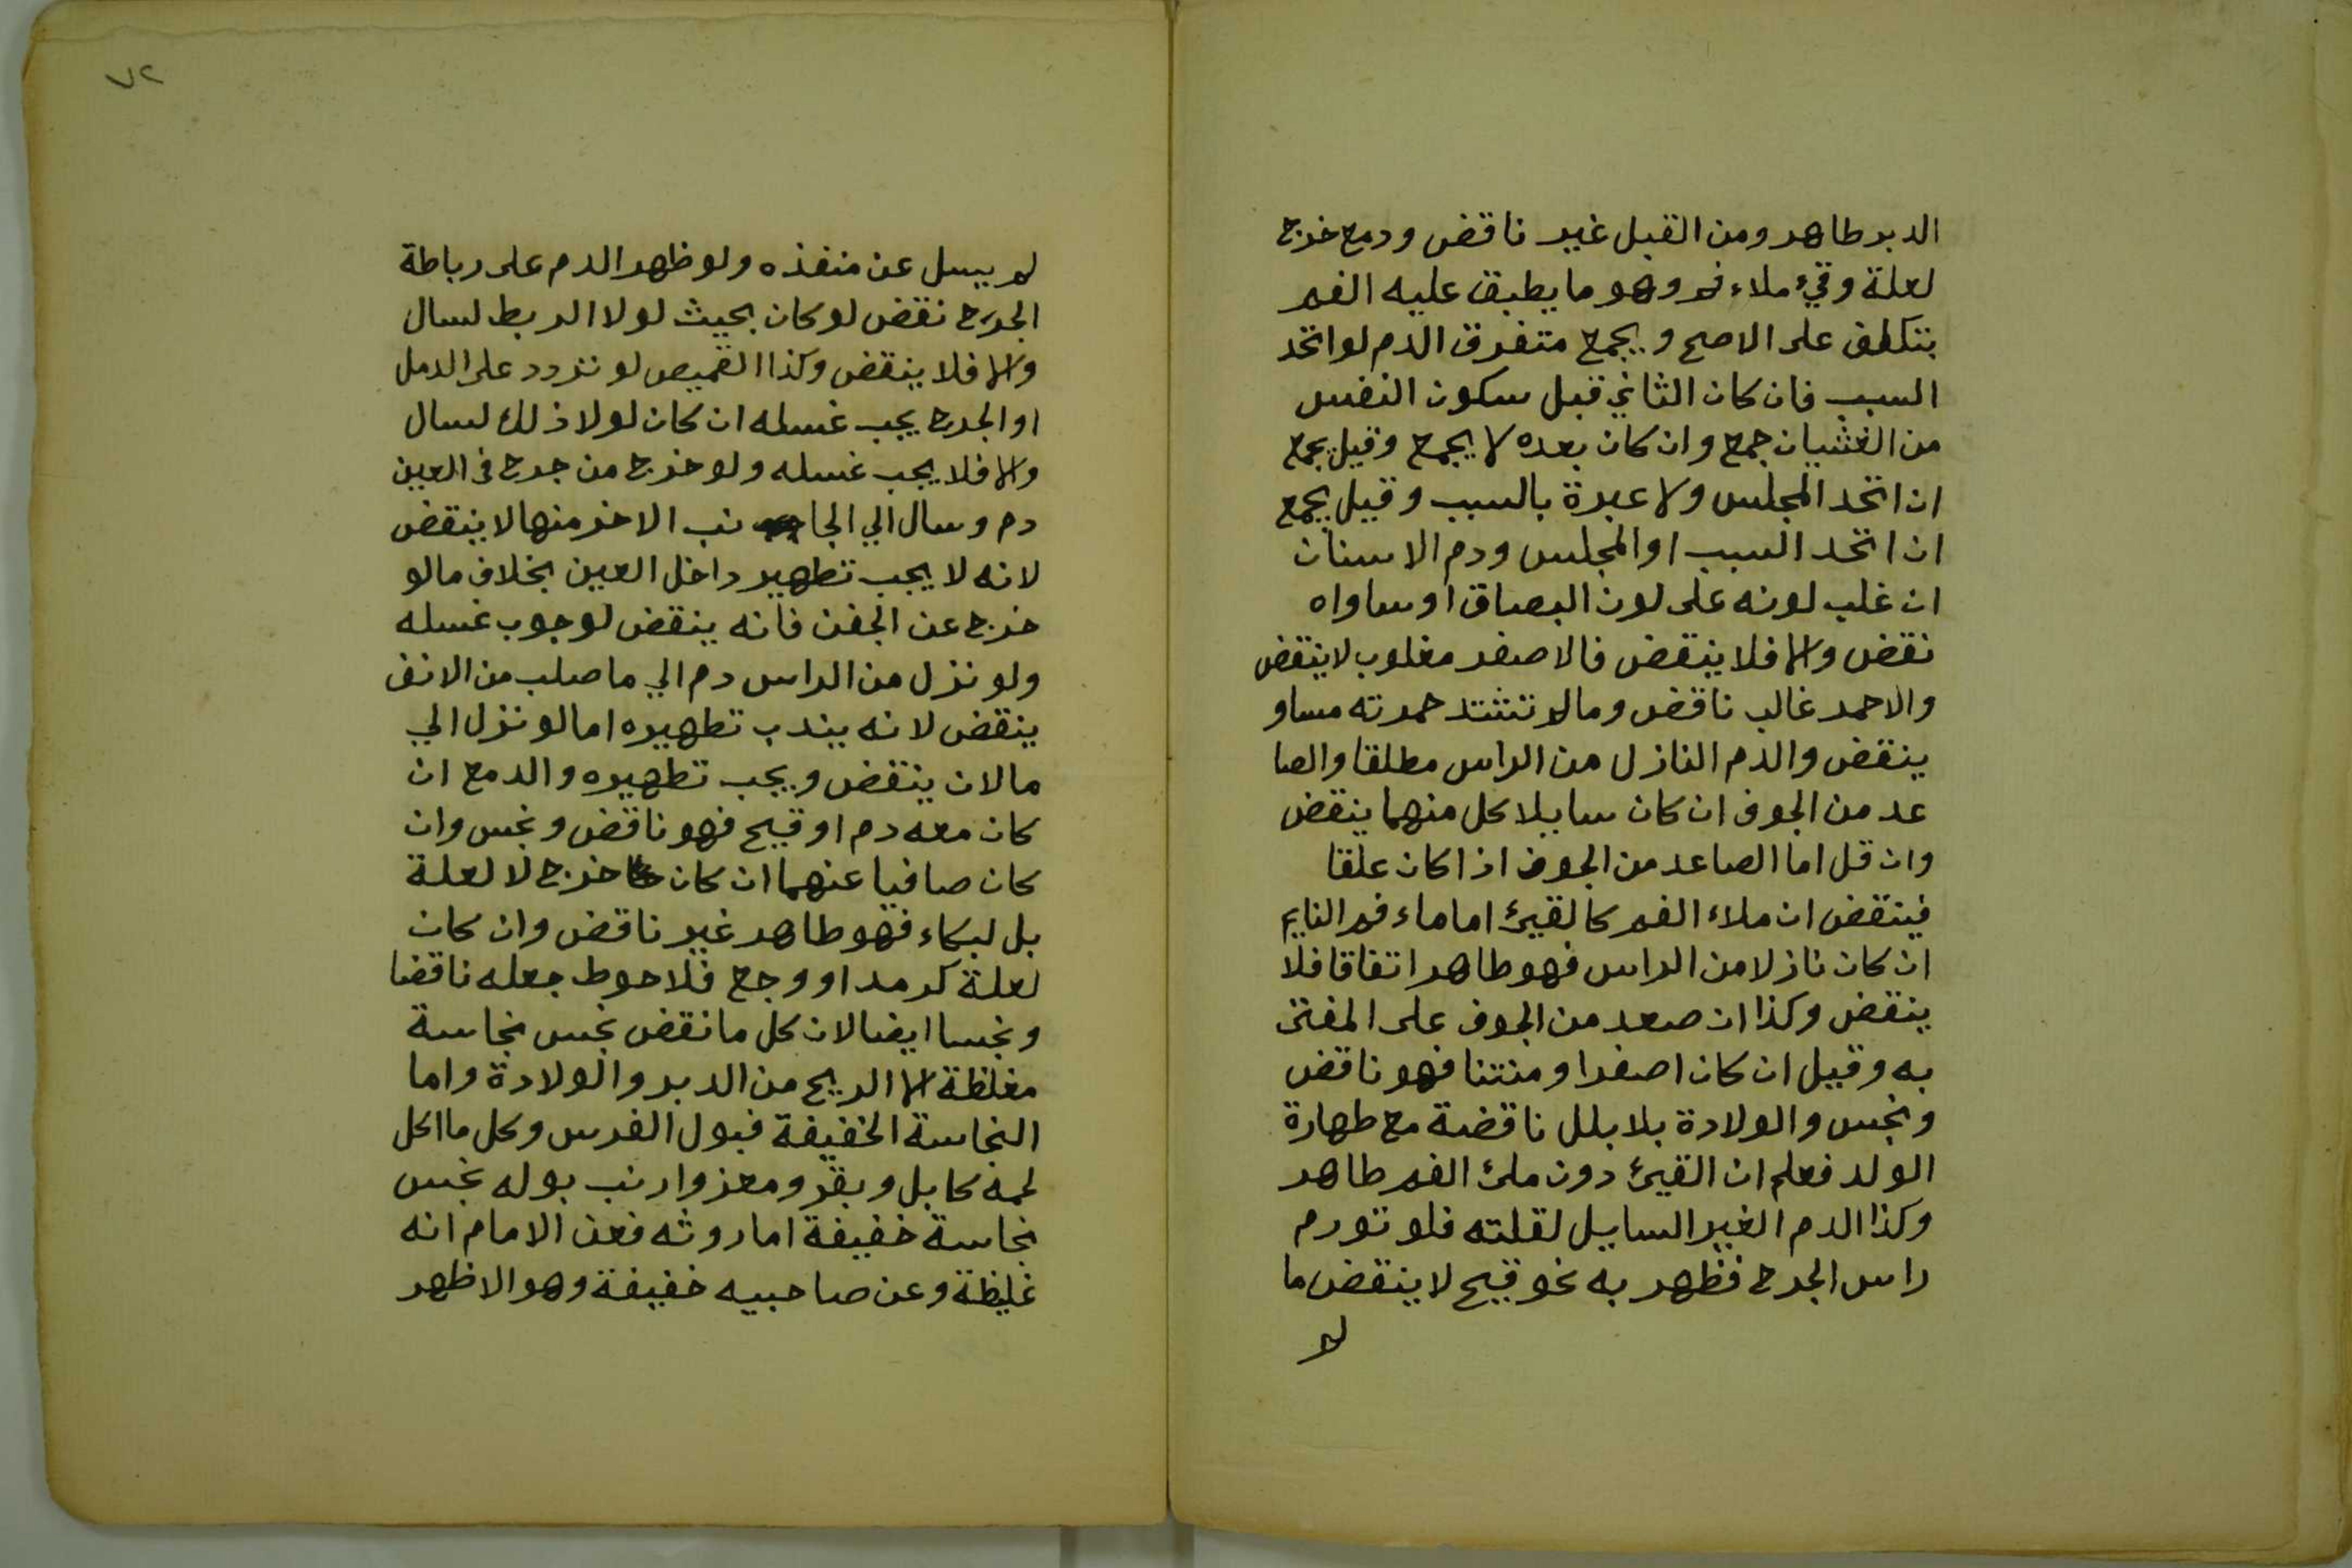 الدبر طاهر ومن القبل غير ناقض ودمع خرج
لعلة وقيء ملاء فم وهو ما يطبق عليه الفم
بتكلف على الاصح ويجمع متفرق الدم لو اتحد
السبب فان كان الثاني قبل سكون النفس
من الغثيان جمع وان كان بعده لا يجمع وقيل يجمع
ان اتحد المجلس ولا عبرة بالسبب وقيل يجمع
ان اتحد السبب او المجلس ودم الاسنان
ان غلب لونه على لون البصاق او ساواه
نقض والا فلا ينقض فالاصفر مغلوب لا ينقض
والاحمر غالب ناقض وما لم تشتد حمرته مساو
ينقض والدم النازل من الراس مطلقا والصا
عد من الجوف ان كان سايلا كل منهما ينقض
وان قل اما الصاعد من الجوف اذا كان علقا
فينقض ان ملاء الفم كالقيئ اما ماء فم النايم
ان كان نازلا من الراس فهو طاهر اتفاقا فلا
ينقض وكذا ان صعد من الجوف على المفتى
به وقيل ان كان اصفر او منتنا فهو ناقض
ونجس والولادة بلا بلل ناقضة مع طهارة
الولد فعلم ان القيئ دون ملئ الفم طاهر
وكذا الدم الغير السايل لقلته فلو تورم
راس الجرح فظهر به نحو قيح لا ينقض ما
لم
٧٢
لم يسل عن منفذه ولو ظهر الدم على رباطة
الجرح نقض لو كان بحيث لولا الربط لسال
والا فلا ينقض وكذا القميص لو تردد على الدمل
او الجرح يجب غسله ان كان لولا ذلك لسال
والا فلا يجب غسله ولو خرج من جرح في العين
دم وسال الي الجا نب الاخر منها لا ينقض
لانه لا يجب تطهير داخل العين بخلاف ما لو
خرج عن الجفن فانه ينقض لوجوب غسله
ولو نزل من الراس دم الي ما صلب من الانف
ينقض لانه يندب تطهيره اما لو نزل الي
ما لان ينقض ويجب تطهيره والدمع ان
كان معه دم او قيح فهو ناقض ونجس وان
كان صافيا عنهما ان كان خرج لا لعلة
بل لبكاء فهو طاهر غير ناقض وان كان
لعلة كرمد او وجع فلاحوط جعله ناقضا
ونجسا ايضا لان كل ما نقض نجس نجاسة
مغلظة الا الريح من الدبر والولادة واما
النجاسة الخفيفة فبول الفرس وكل ما اكل
لحمه كابل وبقر ومعز وارنب بوله نجس
نجاسة خفيفة اما روثه فعن الامام انه
غليظة وعن صاحبيه خفيفة وهو الاظهر